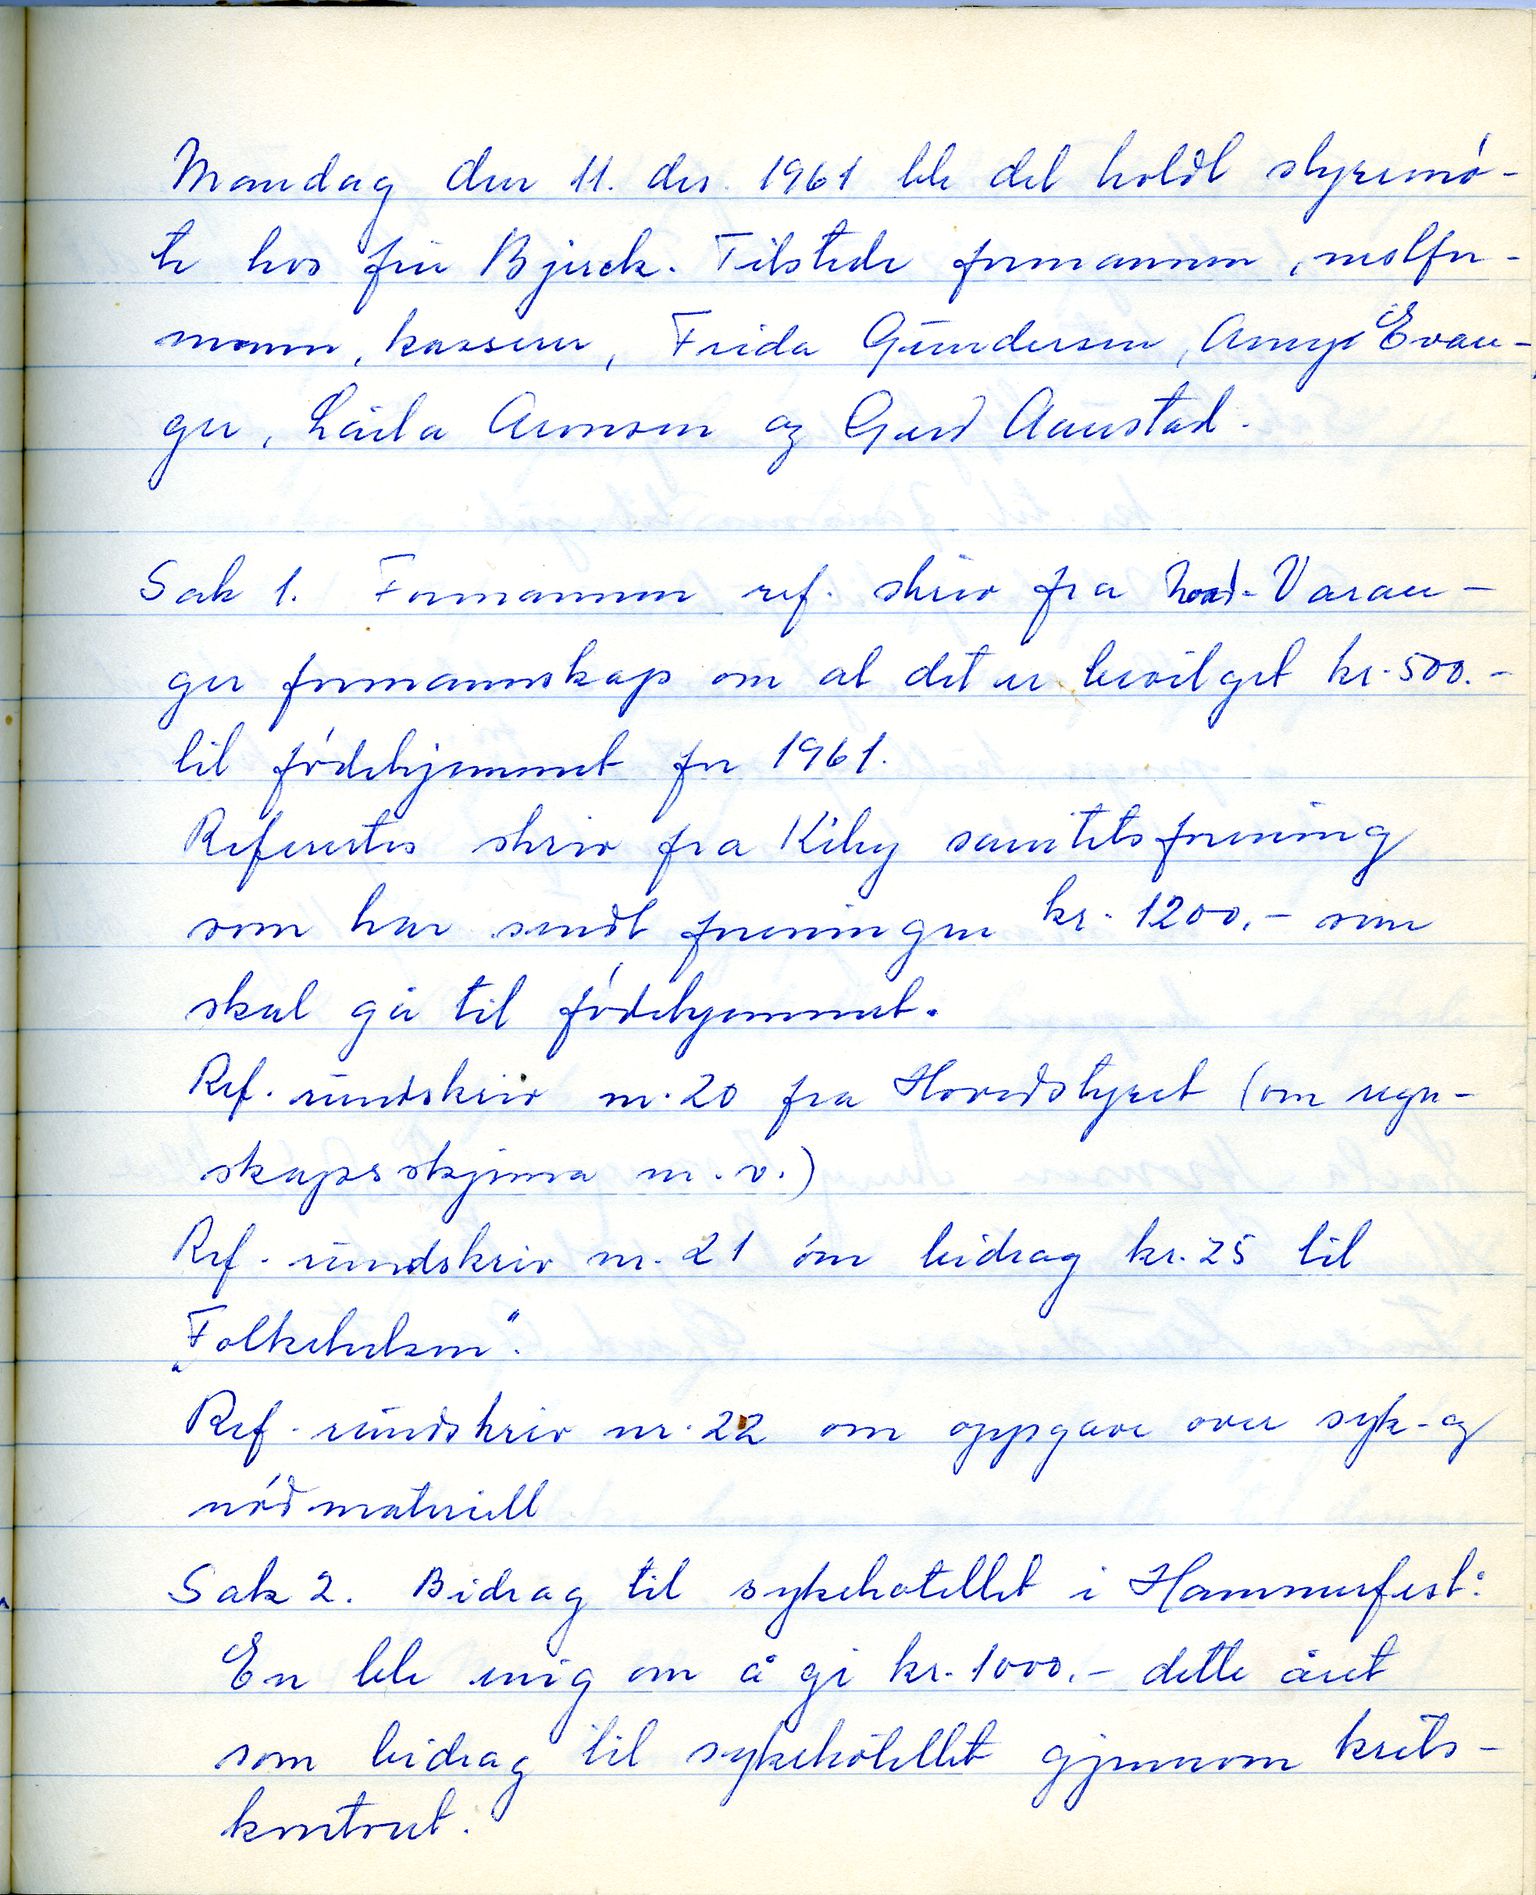 Mandag den 11. des. 1961 ble det holdt styremø-
te hos fru Bjerck. Tilstede formannen, nestfor-
mann, kasserer, Frida Gundersen, Anny Evan-
ger, Laila Aronsen og Gerd Aanstad.
Sak 1. Formannen ref. skriv fra Nord-Varan-
ger formannskap om at det er bevilget kr. 500.-
til fødehjemmet for 1961.
Refererte skriv fra Kiby sanitetsforening
som har sendt foreningen kr. 1200.- som
skal gå til fødehjemmet.
Ref. rundskriv nr. 20 fra Hovedstyret (om regn-
skapsskjema m.v.)
Ref. rundskriv nr. 21 om bidrag kr. 25 til
"Folkehelsen".
Ref. rundskriv nr. 22 om oppgave over syk- og
nødmateriell
Sak 2. Bidrag til sykehotellet i Hammerfest:
En ble enig om å gi kr. 1000.- dette året
som bidrag til sykehotellet gjennom krets-
kontoret.